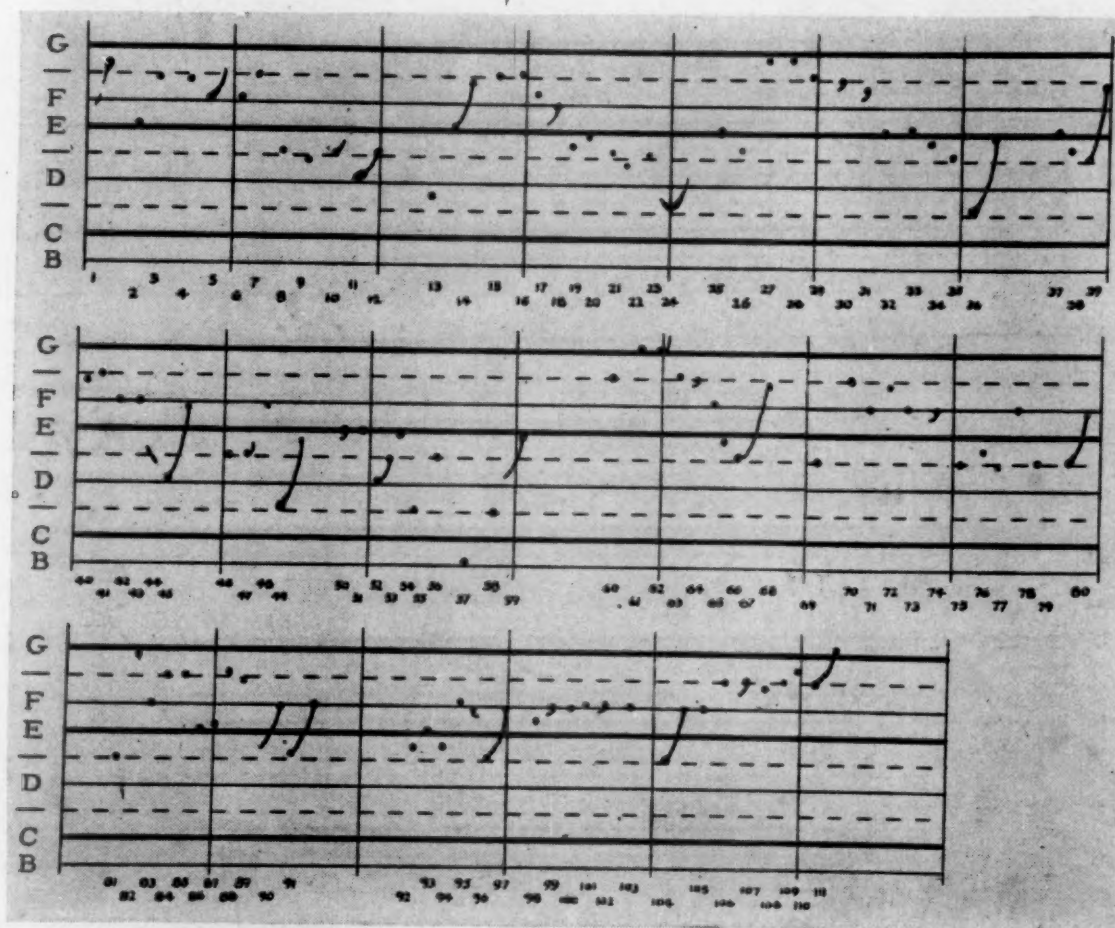 G
F
E
D
C
B
1 2 3 4 5 6 7 8 9 10 11 12 13 14 15 16 17 18 19 20 21 22 23 24 25 26 27 28 29 30 31 32 33 34 35 36 37 38 39
G
F
E
D
C
B
40 41 42 43 44 45 46 47 48 49 50 51 52 53 54 55 56 57 58 59 60 61 62 63 64 65 66 67 68 69 70 71 72 73 74 75 76 77 78 79 80
G
F
E
D
C
B
81 82 83 84 85 86 87 88 89 90 91 92 93 94 95 96 97 98 99 100 101 102 103 104 105 106 107 108 109 110 111